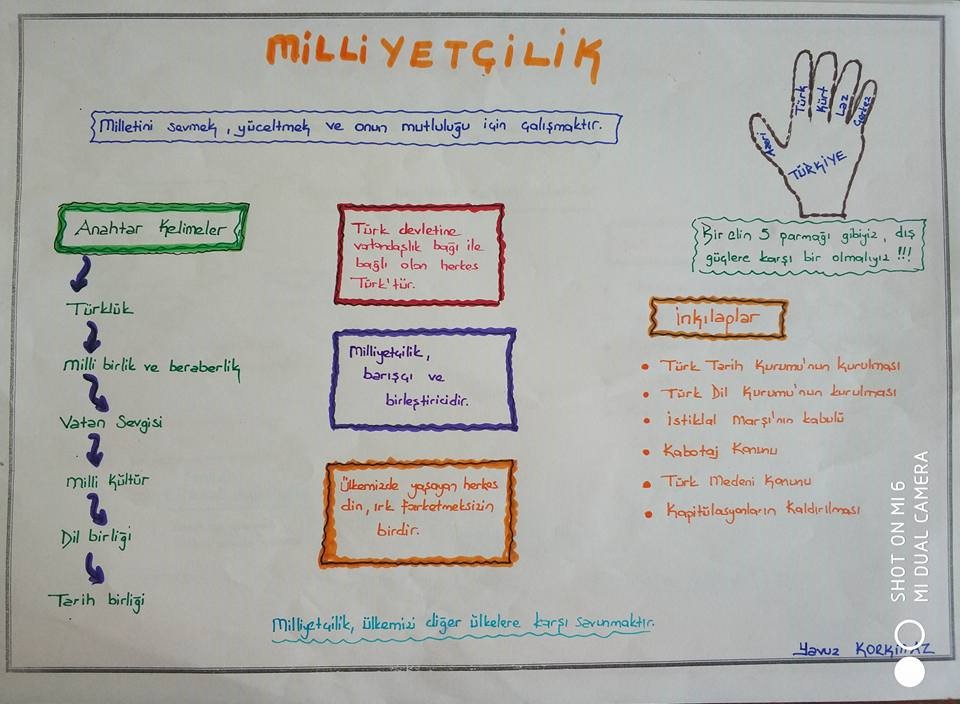 MİLLİYETÇİLİK
Milletini sevmek, yüceltmek ve onun mutluluğu için çalışmaktır.
Türk
Kürt
Laz
Çerkez
TÜRKİYE
Bir elin 5 parmağı gibiyiz, dış
güçlere karşı bir olmalıyız !!!
Anahtar Kelimeler
Türklük
Milli birlik ve beraberlik
Vatan Sevgisi
Milli Kültür
Dil birliği
Tarih birliği
Türk devletine
vatandaşlık bağı ile
bağlı olan herkes
Türk'tür.
Milliyetçilik,
barışçı ve
birleştiricidir.
Ülkemizde yaşayan herkes
din, ırk farketmeksizin
birdir.
inkılaplar
Türk Tarih Kurumu'nun kurulması
Türk Dil Kurumu'nun kurulması
İstiklal Marşı'nın kabulü
Kabotaj Kanunu
Türk Medeni Kanunu
Kapitülasyonların Kaldırılması
Milliyetçilik, ülkemizi diğer ülkelere karşı savunmaktır.
Yavuz KORKMAZ
SHOT ON MI 6
MI DUAL CAMERA